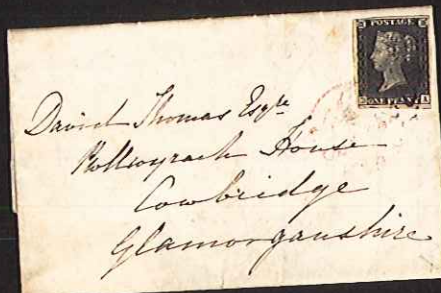 POSTAGE
ONE PENNY
David Thomas Esqre
House
Cowbridge
Glamorganshire